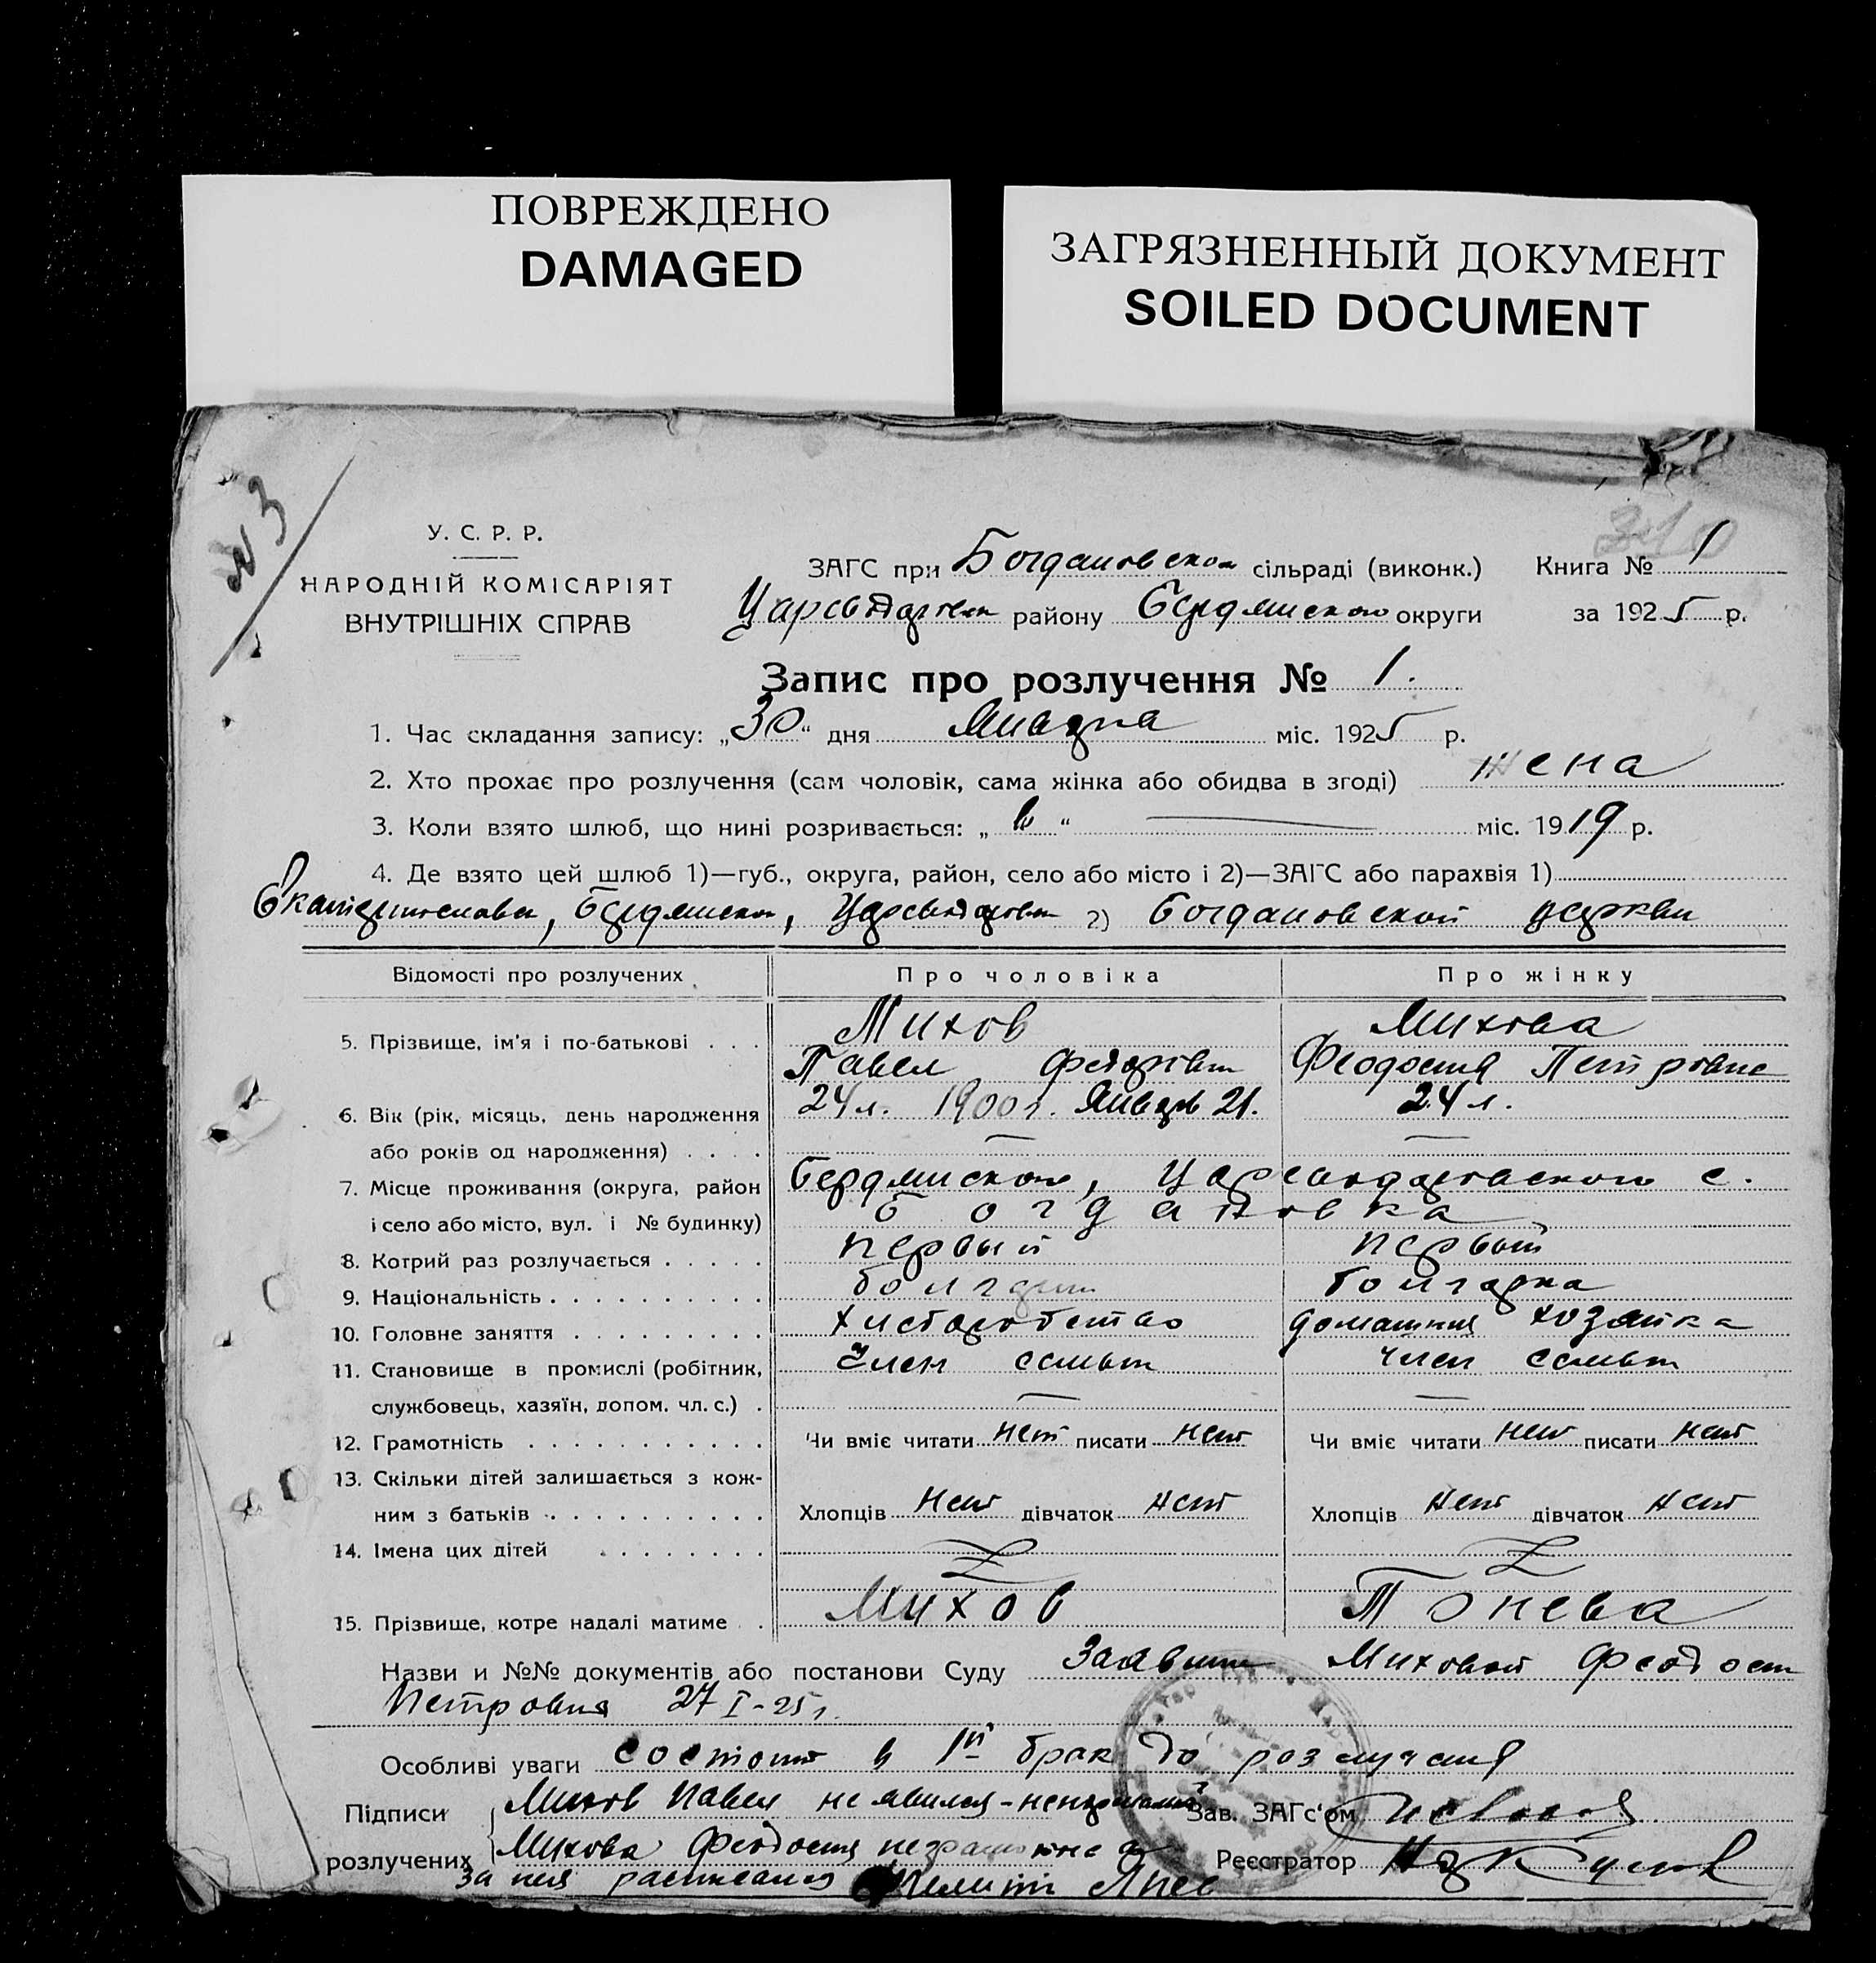 ПОВРЕЖДЕНО
DAMAGED
ЗАГРЯЗНЕННЫЙ ДОКУМЕНТ
SOILED DOCUMENT
№ 3
310
У. С. Р. Р.
НАРОДНІЙ КОМІСАРІЯТ
ВНУТРІШНІХ СПРАВ
ЗАГС при Богдановском сільраді (виконк.) Книга № 1
району Бердянского округи за 1925 р.
Запис про розлучення № 1.
1. Час складання запису: „30“ дня Января міс. 1925 р.
2. Хто прохає про розлучення (сам чоловік, сама жінка або обидва в згоді) жена
3. Коли взято шлюб, що нині розривається: „в“ — міс. 1919 р.
4. Де взято цей шлюб 1)—губ., округа, район, село або місто і 2)—ЗАГС або парахвія 1)
2) Богдановской церкви
Відомості про розлучених Про чоловіка Про жінку
5. Прізвище, ім'я і по-батькові . . . Михов Михова
Павел Феодосия Петровна
6. Вік (рік, місяць, день народження 24 л. 1900 г. Январь 21. 24 л.
або років од народження) . . . . — —
7. Місце проживання (округа, район Бердянского, с.
і село або місто, вул. і № будинку) Богдановка
8. Котрий раз розлучається . . . . . первый первый
9. Національність . . . . . . . . . . болгарин болгарка
10. Головне заняття . . . . . . . . . хлеборобство домашняя хозяйка
11. Становище в промислі (робітник, Член семьи член семьи
службовець, хазяїн, допом. чл. с.) . — —
12. Грамотність . . . . . . . . . . . Чи вміє читати нет писати нет Чи вміє читати нет писати нет
13. Скільки дітей залишається з кож-
ним з батьків . . . . . . . . . . Хлопців нет дівчаток нет Хлопців нет дівчаток нет
14. Імена цих дітей . . . . . . . .
15. Прізвище, котре надалі матиме . . Михов Тонева
Назви и №№ документів або постанови Суду Миховой
Петровна 27 I-25 г.
Особливі уваги состоит в 1й брак до розлучения
Підписи Михов Павел не явился - Зав. ЗАГс'ом
розлучених Михова Феодосия неграмотна а Реєстратор
за нея